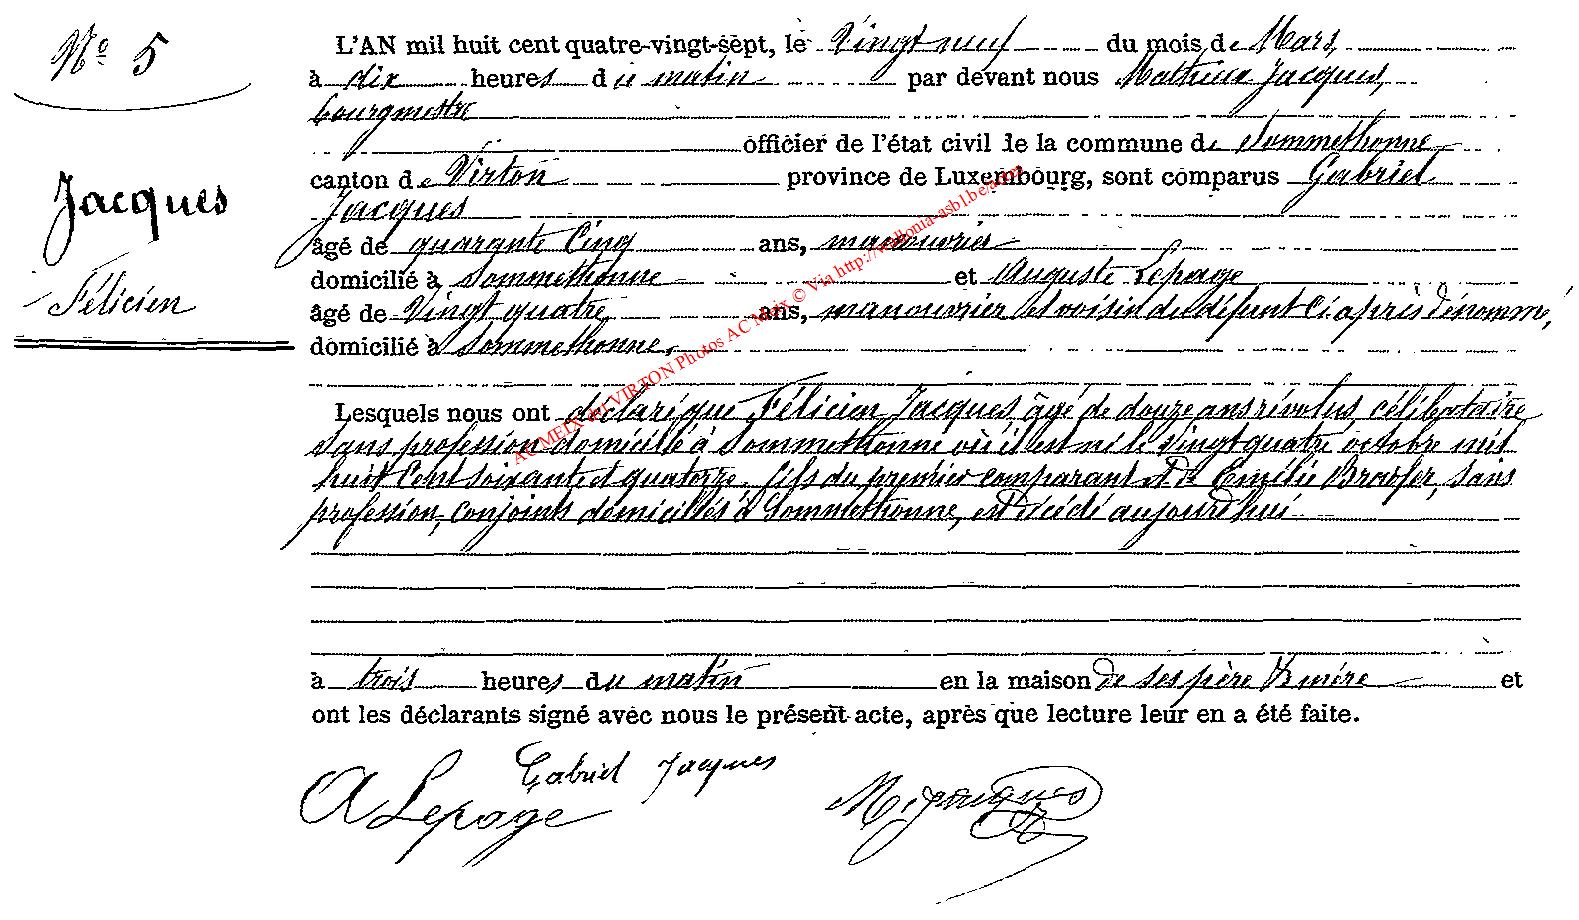 N° 5
Jacques
Félicien
L'AN mil huit cent quatre-vingt-sept, le Vingt neuf du mois de Mars,
à dix heures du matin par devant nous Mathieu Jacques,
bourgmestre
officier de l'état civil de la commune de Sommethonne
canton de Virton province de Luxembourg, sont comparus Gabriel
Jacques
âgé de quarante Cinq ans, manouvrier
domicilié à Sommethonne et Auguste Lepage
âgé de Vingt quatre ans, manouvrier et voisin du défunt Ci après dénommé,
domicilié à Sommethonne.
Lesquels nous ont déclaré que Félicien Jacques, âgé de douze ans révolus, célibataire
sans profession domicilié à Sommethonne où il est né le Vingt quatre octobre mil
huit Cent soixante et quatorze, fils du premier comparant et de Emélie, sans
profession, conjoints domiciliés à Sommethonne, est décédé aujourd'hui
à trois heures du matin en la maison de ses père & mère et
ont les déclarants signé avec nous le présent acte, après que lecture leur en a été faite.
Gabriel Jacques
A Lepage
M. Jacques
AC MEIX dvt VIRTON Photos AC Meix © Via http://wallonia-asbl.be/